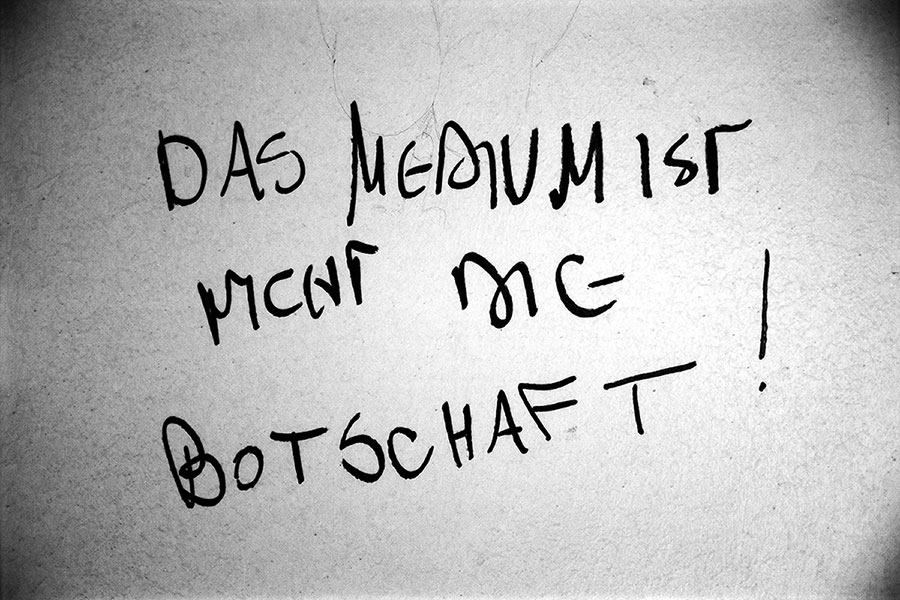 DAS MEDIUM IST
NICHT DIE
BOTSCHAFT!